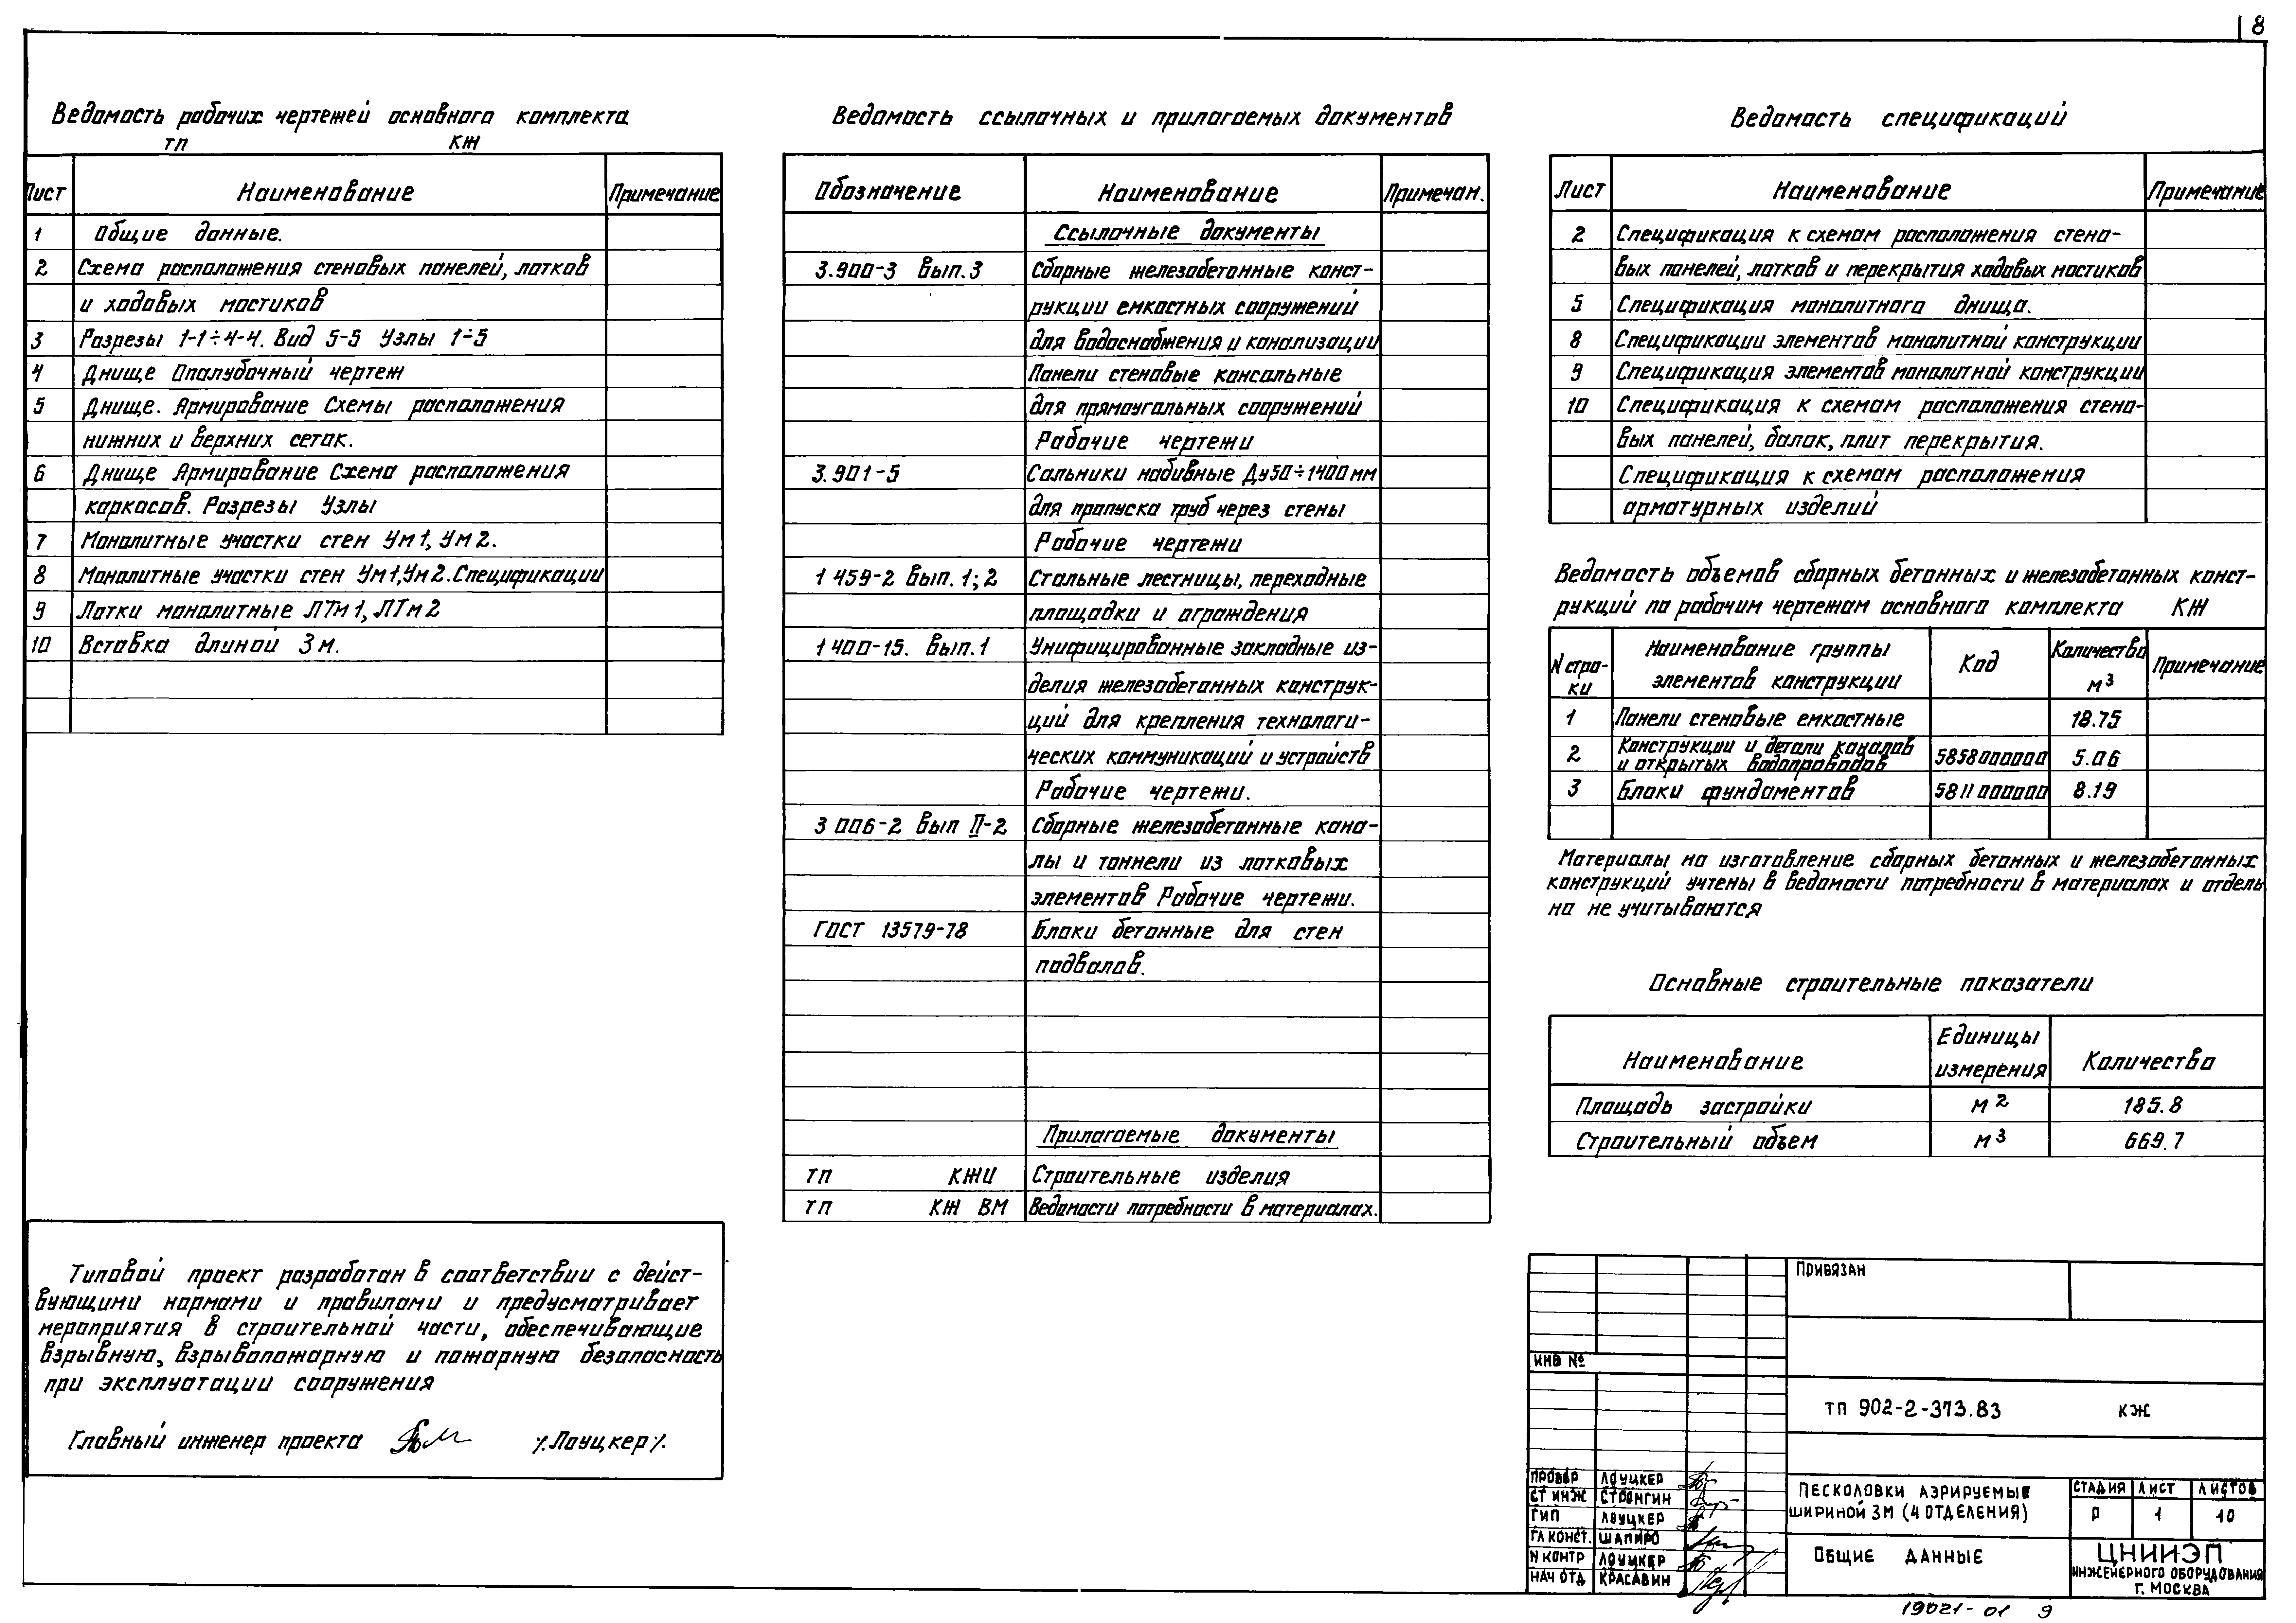 8
Ведомость рабочих чертежей основного комплекта
ТП КЖ
Лист Наименование Примечание
1 Общие данные.
2 Схема расположения стеновых панелей, лотков
и ходовых мостиков
3 Разрезы 1-1÷4-4. Вид 5-5 Узлы 1÷5
4 Днище Опалубочный чертеж
5 Днище. Армирование Схемы расположения
нижних и верхних сеток.
6 Днище Армирование Схема расположения
каркасов. Разрезы Узлы
7 Монолитные участки стен Ум1, Ум2.
8 Монолитные участки стен Ум1, Ум2. Спецификации
9 Лотки монолитные ЛТм1, ЛТм2
10 Вставка длиной 3м.
Типовой проект разработан в соответствии с дейст-
вующими нормами и правилами и предусматривает
мероприятия в строительной части, обеспечивающие
взрывную, взрывопожарную и пожарную безопасность
при эксплуатации сооружения
Главный инженер проекта /.Лоуцкер/.
Ведомость ссылочных и прилагаемых документов
Обозначение Наименование Примечан.
Ссылочные документы
3.900-3 Вып.3 Сборные железобетонные конст-
рукции емкостных сооружений
для водоснабжения и канализации
Панели стеновые консольные
для прямоугольных сооружений
Рабочие чертежи
3.901-5 Сальники набивные Ду50÷1400мм
для пропуска труб через стены
Рабочие чертежи
1 459-2 Вып. 1; 2 Стальные лестницы, переходные
площадки и ограждения
1 400-15. Вып.1 Унифицированные закладные из-
делия железобетонных конструк-
ций для крепления технологи-
ческих коммуникаций и устройств
Рабочие чертежи.
3 006-2 Вып II-2 Сборные железобетонные кана-
лы и тоннели из лотковых
элементов Рабочие чертежи.
ГОСТ 13579-78 Блоки бетонные для стен
подвалов.
Прилагаемые документы
ТП КЖИ Строительные изделия
ТП КЖ ВМ Ведомости потребности в материалах.
Ведомость спецификаций
Лист Наименование Примечание
2 Спецификация к схемам расположения стено-
вых панелей, лотков и перекрытия ходовых мостиков
5 Спецификация монолитного днища.
8 Спецификации элементов монолитной конструкции
9 Спецификация элементов монолитной конструкции
10 Спецификация к схемам расположения стено-
вых панелей, балок, плит перекрытия.
Спецификация к схемам расположения
арматурных изделий
Ведомость объемов сборных бетонных и железобетонных конст-
рукций по рабочим чертежам основного комплекта КЖ
N стро-
ки
Наименование группы
элементов конструкции
Код
Количество
м³
Примечание
1 Панели стеновые емкостные 18.75
2 Конструкции и детали каналов
и открытых водопроводов 5858000000 5.06
3 Блоки фундаментов 5811000000 8.19
Материалы на изготовление сборных бетонных и железобетонных
конструкций учтены в ведомости потребности в материалах и отдель
но не учитываются
Основные строительные показатели
Наименование
Единицы
измерения
Количество
Площадь застройки м² 185.8
Строительный объем м³ 669.7
ПРИВЯЗАН
ИНВ №
ТП 902-2-373.83 КЖ
ПРОВЕР ЛОУЦКЕР
СТ ИНЖ СТРОНГИН
ГИП ЛОУЦКЕР
ГЛ КОНСТ. ШАПИРО
Н КОНТР ЛОУЦКЕР
НАЧ ОТД КРАСАВИН
ПЕСКОЛОВКИ АЭРИРУЕМЫЕ
ШИРИНОЙ 3М (4 ОТДЕЛЕНИЯ)
СТАДИЯ ЛИСТ ЛИСТОВ
Р 1 10
ОБЩИЕ ДАННЫЕ
ЦНИИЭП
ИНЖЕНЕРНОГО ОБОРУДОВАНИЯ
Г. МОСКВА
19021-01 9